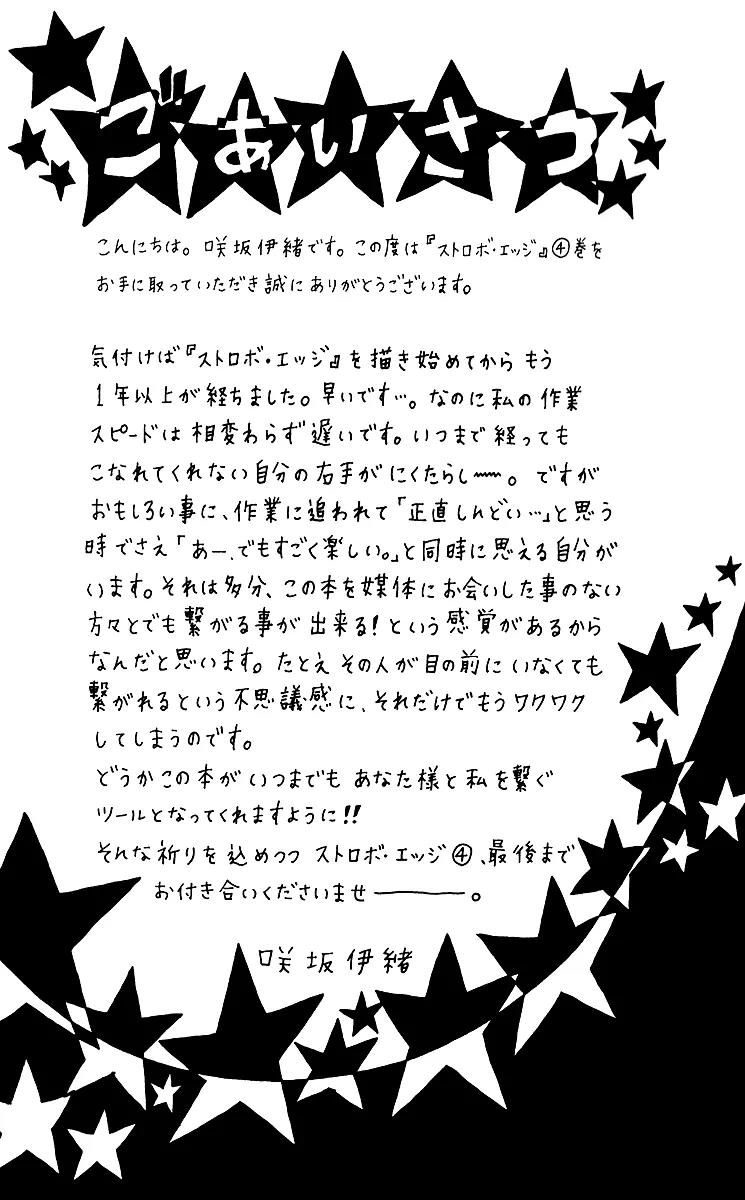 ごあいさつ
こんにちは。咲坂伊緒です。この度は『ストロボ・エッジ』④巻を
お手に取っていただき誠にありがとうございます。
気付けば『ストロボ・エッジ』を描き始めてから もう
1年以上が経ちました。早いです…。なのに私の作業
スピードは相変わらず遅いです。いつまで経っても
こなれてくれない自分の右手がにくたらし〜〜。ですが
おもしろい事に、作業に追われて「正直しんどい…」と思う
時でさえ「あー、でもすごく楽しい。」と同時に思える自分が
います。それは多分、この本を媒体にお会いした事のない
方々とでも繋がる事が出来る!という感覚があるから
なんだと思います。たとえその人が目の前にいなくても
繋がれるという不思議感に、それだけでもうワクワク
してしまうのです。
どうかこの本がいつまでもあなた様と私を繋ぐ
ツールとなってくれますように!!
そんな祈りを込めつつ ストロボ・エッジ④、最後まで
お付き合いくださいませ――――。
咲坂伊緒